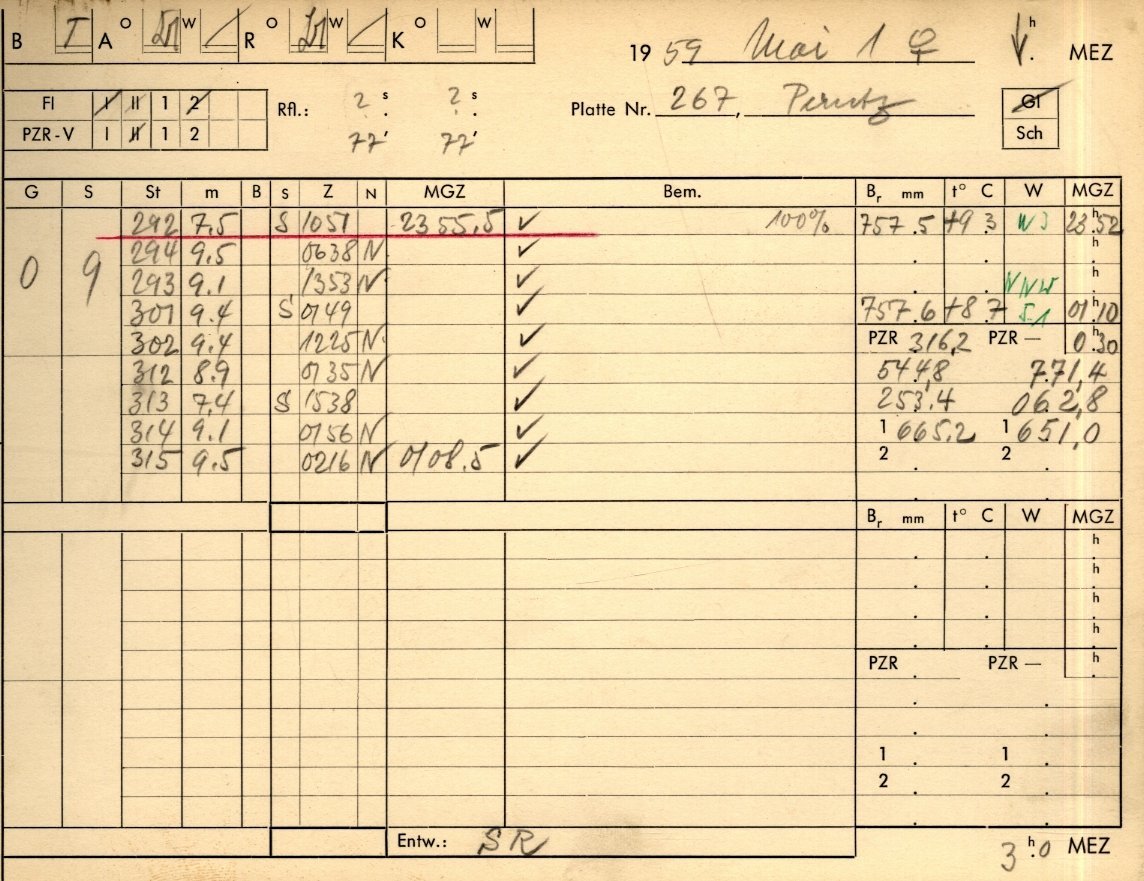 B T A o W R o W K o W
19 59 Mai 1 ♀ h MEZ
FI I II 1 2
PZR-V I II 1 2
Rfl.: 2 s 2 s
77' 77'
Platte Nr. 267, Perutz
Gl
Sch
G S St m B S Z N MGZ Bem. Br mm t° C W MGZ
292 7,5 S 1051 2355,5 ✓ 100% 757.5 +9.3 W 3 23h.52
0 9 294 9.5 0638 N ✓ h
293 9.1 1353 N ✓ NNW h
301 9.4 S 0149 ✓ 757.6 +8.7 01h.10
302 9.4 1225 N ✓ PZR 316,2 PZR — 0h.30
312 8.9 0135 N ✓ 544,8 771,4
313 7,4 S 1538 ✓ 253,4 062,8
314 9.1 0156 N ✓ 1 665.2 1 651,0
315 9.5 0216 N 0108.5 ✓ 2 2
Br mm t° C W MGZ
h
h
h
h
PZR PZR — h
1 1
2 2
Entw.: SR
3h.0 MEZ